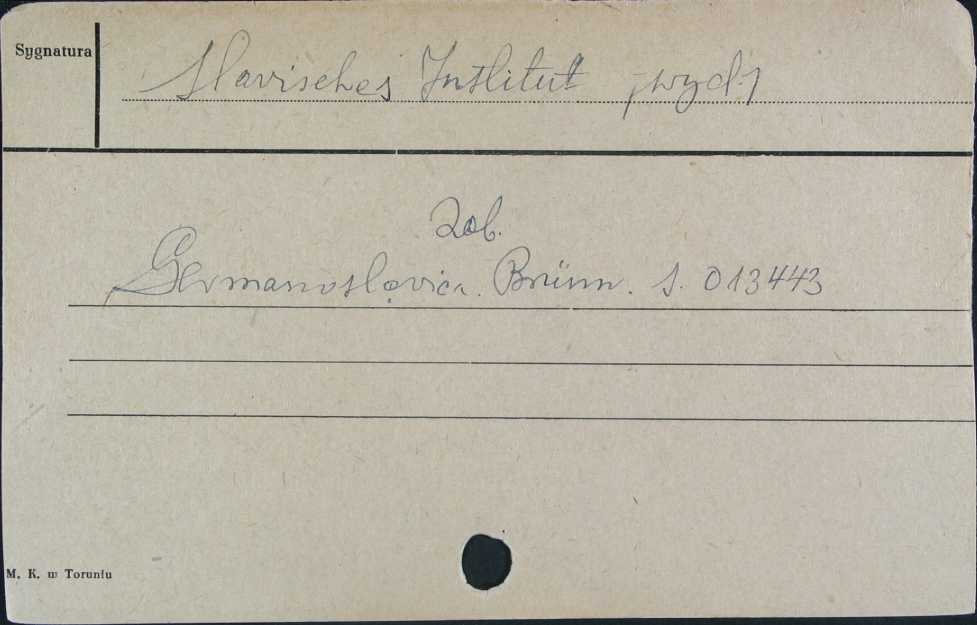 Sygnatura
Slavisches Institut /wyd./
Zob.
Germanoslavica. Brünn. S. 013443
M. K. w Toruniu